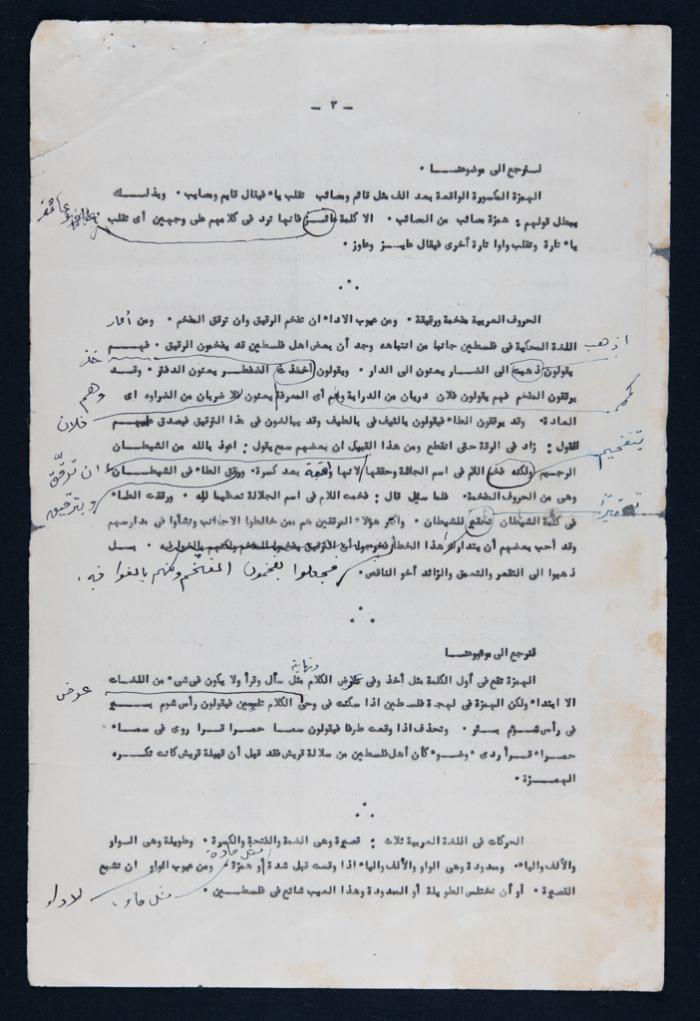 - ٣ -
لنرجع الى موضوعنا ·
الهمزة المكسورة الواقعة بعد الف مثل قائم ومصائب تقلب ياء فيقال قايم ومصايب · وبذلك
يبطل قولهم : همزة مصائب من المصائب · الا كلمة فانها ترد فى كلامهم على وجهين أى تقلب
ياء تارة وتقلب واوا تارة أخرى فيقال عايز وعاوز ·
الحروف العربية مفخمة ورقيقة · ومن عيوب الاداء ان تفخم الرقيق وان ترقق المفخم · ومن
اللغة المحكية فى فلسطين جانبا من انتباهه وجد أن بعض اهل فلسطين قد يفخمون الرقيق · فهم
اذهب
خذ
يقولون يعنون الى الدار · ويقولون يعنون الدفتر · وقد
وهم
يرققون المفخم فهم يقولون فلان دريان من الدراية أى المعرفة يعنون فلا ضريان من الضراوه اى
فلان
العادة · وقد يرققون الطاء فيقولون باللطيف وقد يبالغون فى هذا الترقيق فيصدق عليهم
بتفخيم
القول : زاد فى الرقة حتى انقطع ومن هذا القبيل ان بعضهم سمع يقول : اعوذ بالله من الشيطان
ان ترقّق
الرجيم ولكنه فخم اللام فى اسم الجلالة وحقها لانها بعد كسرة · ورقق الطاء فى الشيطان
وبترقيقه
وهى من الحروف المفخمة · فلما سئل قال : فخمت اللام فى اسم الجلالة تعظيما لله · ورققت الطاء
تحقيرًا
فى كلمة الشيطان تحقير للشيطان · واكثر هؤلاء المرققين هم ممن خالطوا الاجانب ونشأوا فى مدارسهم
وقد أحب بعضهم أن يتداركوا هذا الخطأ · بل
فجعلوا يفخمون المفخم ولكنهم بالغوا فيه ،
ذهبوا الى التقعر والتعمق والزائد أخو الناقص ·
فنرجع الى موضوعنا
ونهاية
الهمزة تقع فى أول الكلمة مثل أخذ وفى الكلام مثل سأل وقرأ ولا يكون فى شىء من اللغات
عوض
الا ابتداء ولكن الهمزة فى لهجة فلسطين اذا سكنت فى الكلام تليين فيقولون راس شوم بير
فى رأس شؤم بئر · وتحذف اذا وقعت طرفا فيقولون سما حمرا قرا روى فى سماء
حمراء قرأ ردىء وضوء كأن أهل فلسطين من سلالة قريش فقد قيل أن قبيلة قريش كانت تكره
الهمزة ·
الحركات فى اللغة العربية ثلاث : قصيرة وهى الضمة والفتحة والكسرة · وطويلة وهى الواو
مثل مادة
والألف والياء · وممدودة وهى الواو والألف والياء اذا وقعت قبل شدة أو همزة ومن عيوب الاداء ان تشبع
الاداء
مثل ماء ،
القصيرة · أو أن تختلس الطويلة أو الممدودة وهذا العيب شائع فى فلسطين ·